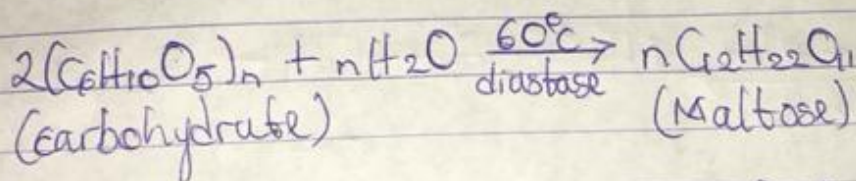 2(C6H10O5)n + nH2O 60°C → diastase nC12H22O11
(carbohydrate) (Maltose)